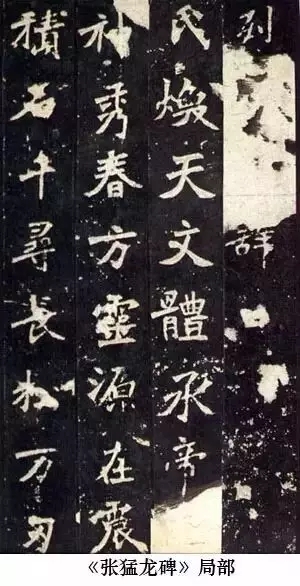 辭
氏煥天文體承帝
神秀春方靈源在震
積石千尋長松万刃
《张猛龙碑》局部